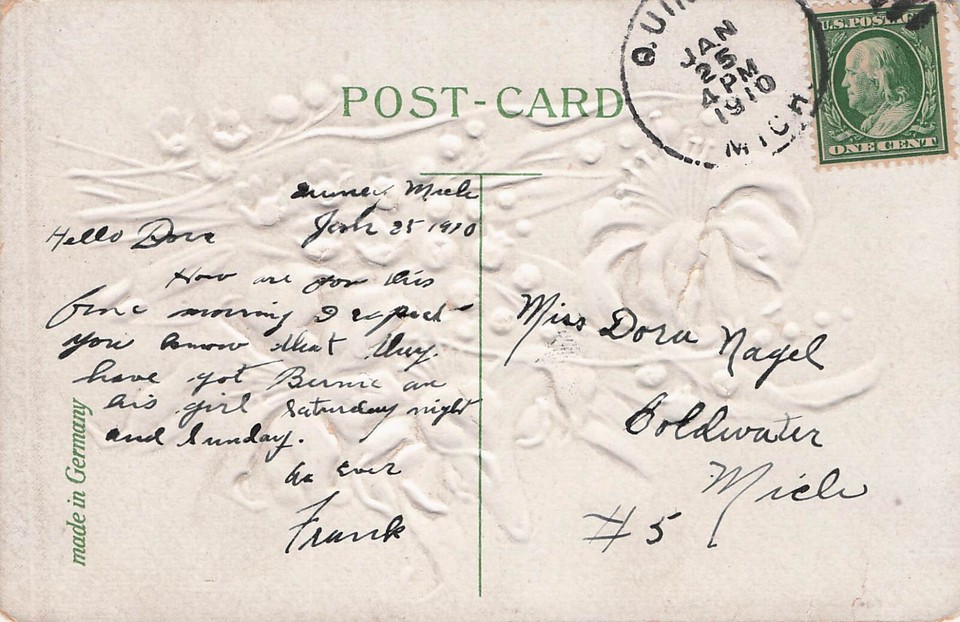 POST-CARD
JAN
25
4 PM
1910
MICH
U.S. POSTAGE
ONE CENT
Mich
Jan 25 1910
Hello Dora
How are you this
fine morning I expect
you know that they
have got Bernie an
his girl Saturday night
and Sunday.
as Ever
Frank
Miss Dora Nagel
Coldwater
Mich
#5
made in Germany